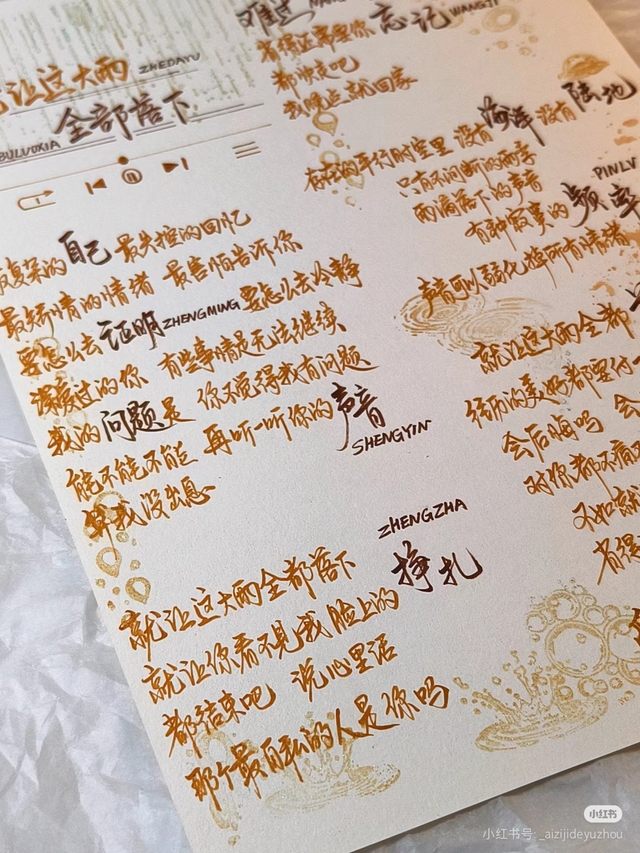 就让这大雨 ZHEDAYU
全部落下
BULUOXIA
反复录的自己 最失控的回忆
最矫情的情绪 最害怕告诉你
要怎么去证明 ZHENGMING 要怎么去冷静
深爱过的你 有些事情是无法继续
我的问题是 你不觉得我有问题
能不能不能 再听一听你的声音
SHENGYIN
算我没出息
就让这大雨全都落下
ZHENGZHA
挣扎
就让你看不见我脸上的
都结束吧 说心里话
那个最自私的人是你吗
难过
有得还要跟你忘记 WANGJI
都快走吧
我晚点就回家
存在的平行时空里 没有海洋 没有陆地
只有不间断的雨季
雨滴落下的声音
PINLV
有种寂寞的频率
声音可以弱化掉所有情绪
就让这大雨全都
经历的美好都
会后悔吗 会
对你都不痛
不如就
有得
小红书
小红书号:_aizijideyuzhou